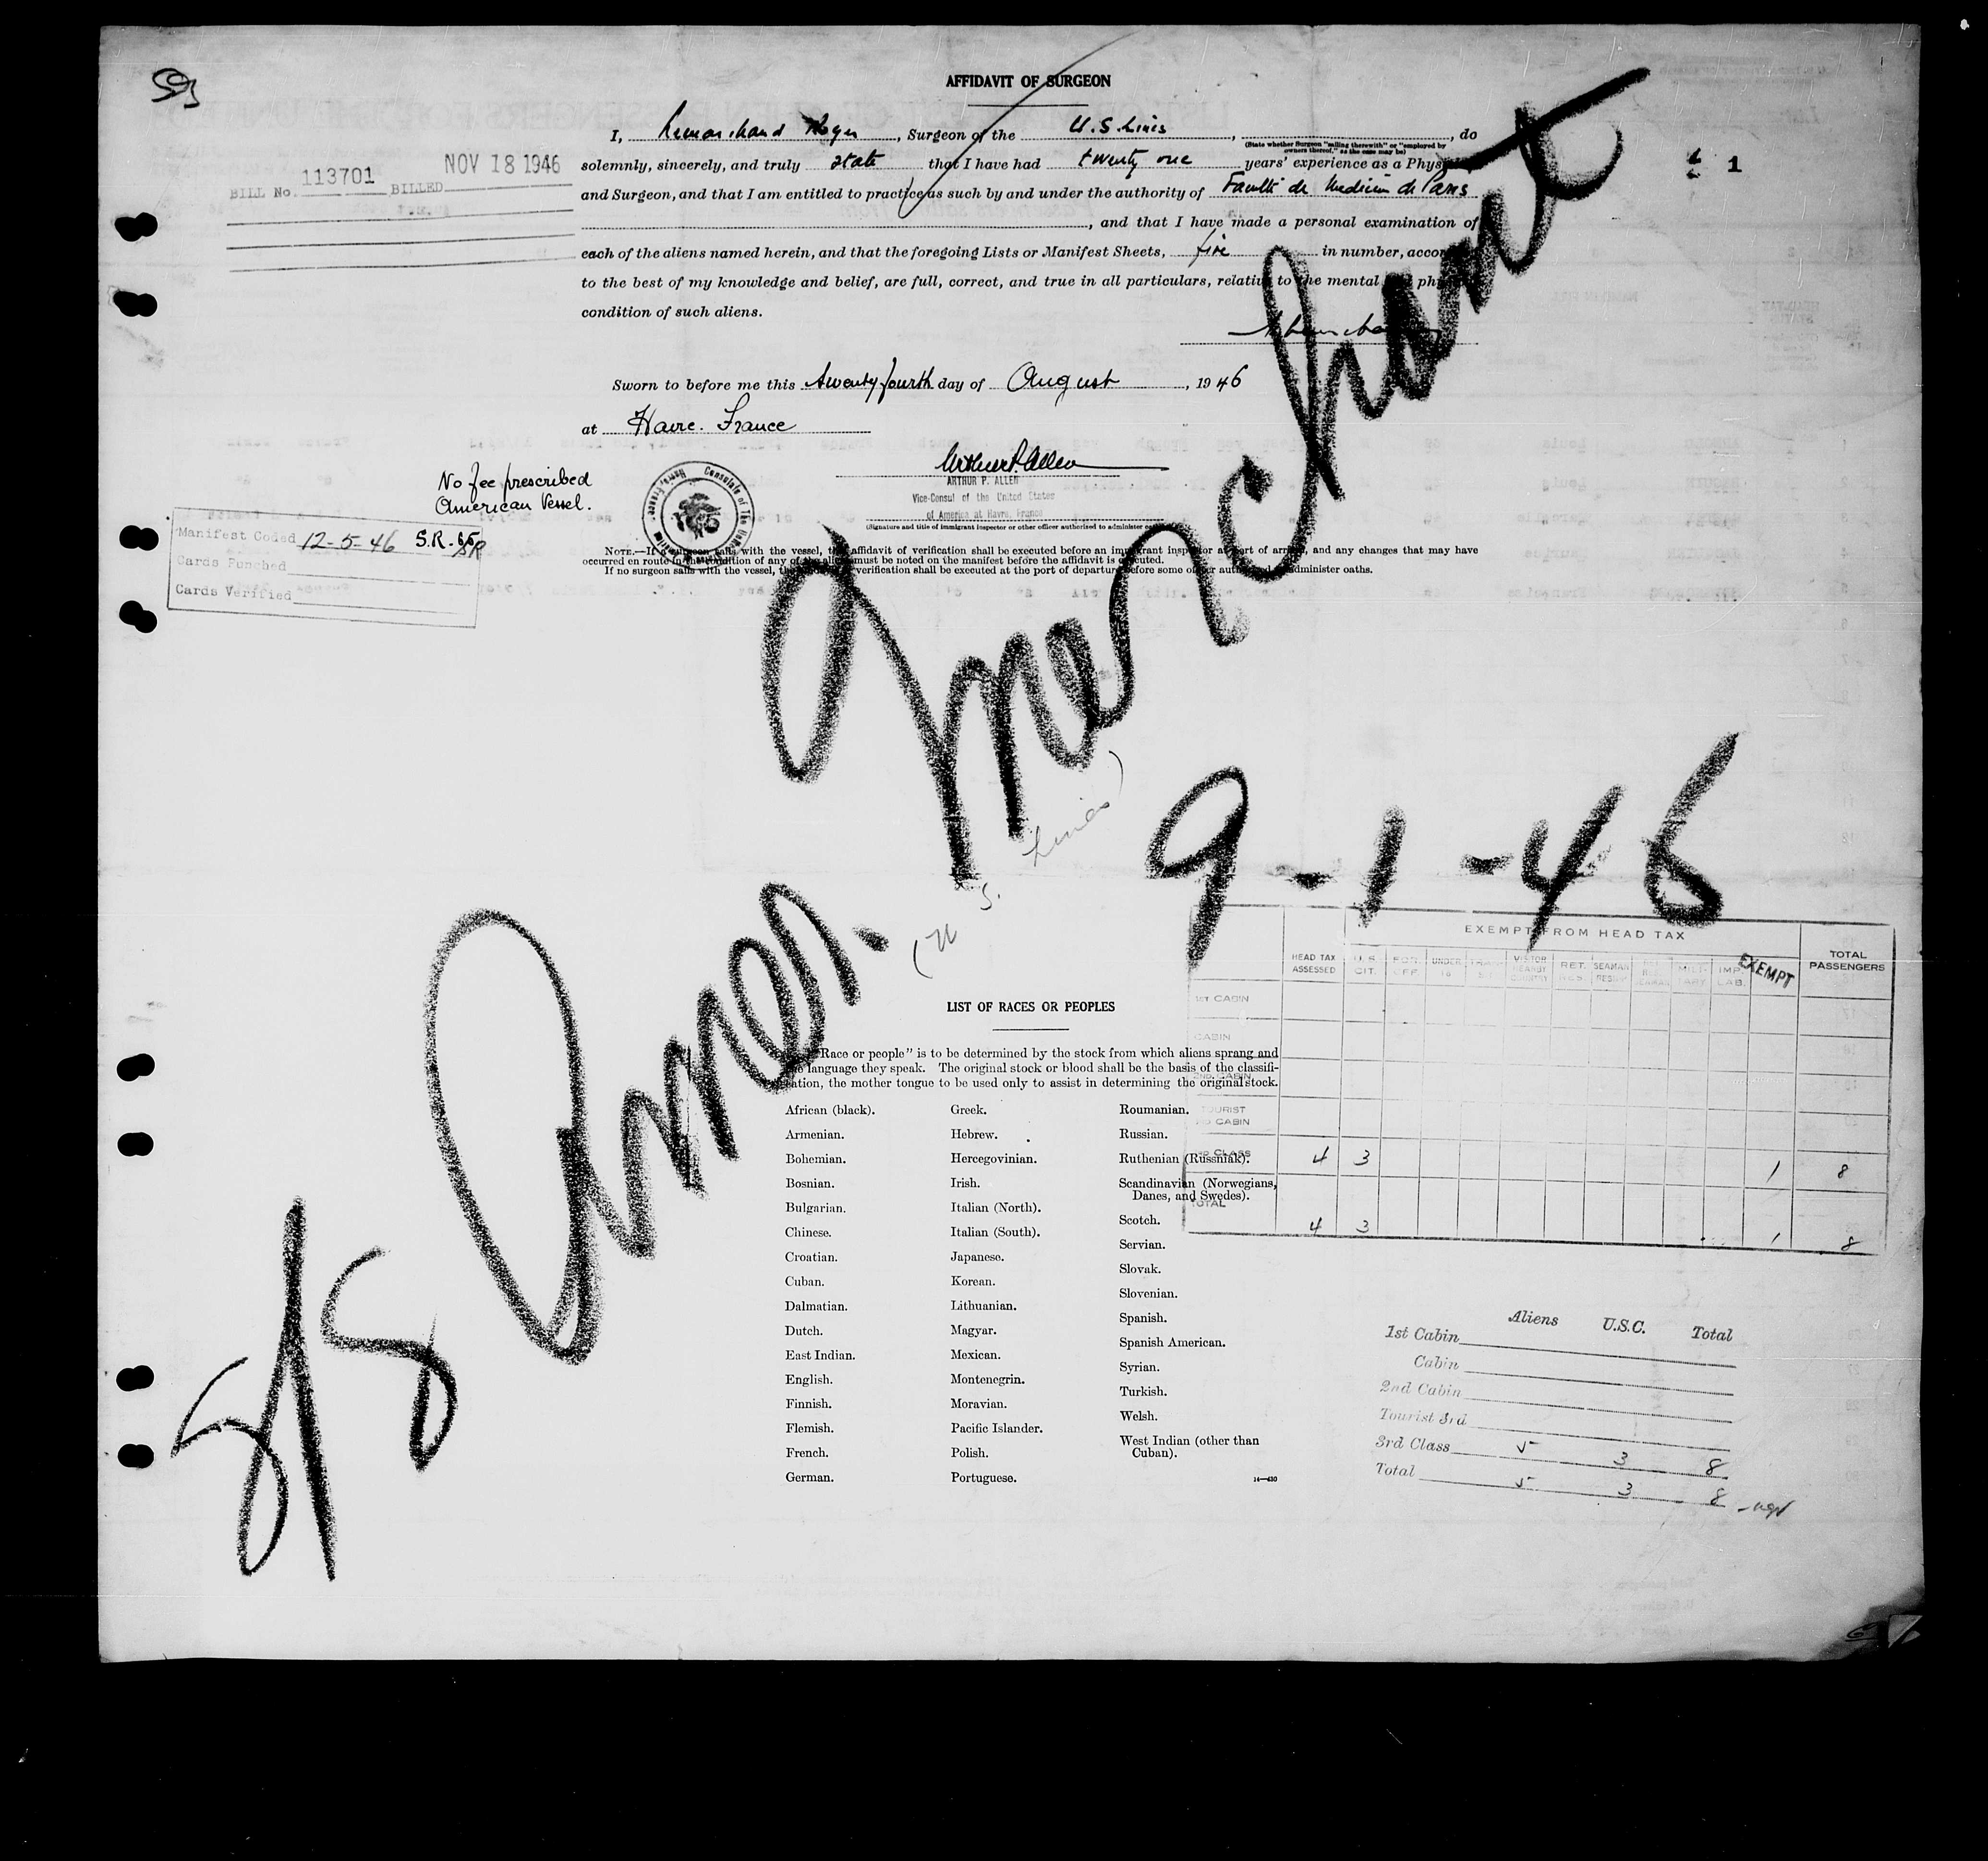 AFFIDAVIT OF SURGEON
I, Lemarchand Roger, Surgeon of the U.S. Lines, , do
(State whether Surgeon "sailing therewith" or "employed by
owners thereof," as the case may be)
solemnly, sincerely, and truly state that I have had twenty one years' experience as a
and Surgeon, and that I am entitled to practice as such by and under the authority of Faculté de Medicin de Paris
, and that I have made a personal examination of
each of the aliens named herein, and that the foregoing Lists or Manifest Sheets, five in number,
to the best of my knowledge and belief, are full, correct, and true in all particulars, relative to the mental
condition of such aliens.
1
BILL No. 113701 BILLED NOV 18 1946
Sworn to before me this twenty fourth day of August, 1946
at Havre. France
Arthur P. Allen
ARTHUR P. ALLEN
Vice-Consul of the United States
of America at Havre, France
(Signature and title of immigrant inspector or other officer authorized to administer
No fee prescribed
American Vessel.
Manifest Coded 12-5-46 S.R.
Cards Punched
Cards Verified
NOTE.—If a surgeon sails with the vessel, affidavit of verification shall be executed before an immigrant inspector at port of arrival, and any changes that may have
occurred en route in the condition of any of the must be noted on the manifest before the affidavit is executed.
If no surgeon sails with the vessel, verification shall be executed at the port of departure before some administer oaths.
S/S Amer. Merchant
(U S. Lines)
9-1-46
EXEMPT FROM HEAD TAX
HEAD TAX ASSESSED U.S. CIT. UNDER 16 VISITOR NEARBY COUNTRY RET. RES. SEAMAN MILITARY IMP. LAB. EXEMPT TOTAL PASSENGERS
1ST CABIN
CABIN
2ND CABIN
TOURIST
3RD CABIN
3RD CLASS 4 3 1 8
TOTAL 4 3 1 8
LIST OF RACES OR PEOPLES
"Race or people" is to be determined by the stock from which aliens sprang and
the language they speak. The original stock or blood shall be the basis of the classifi-
cation, the mother tongue to be used only to assist in determining the original stock.
African (black).
Armenian.
Bohemian.
Bosnian.
Bulgarian.
Chinese.
Croatian.
Cuban.
Dalmatian.
Dutch.
East Indian.
English.
Finnish.
Flemish.
French.
German.
Greek.
Hebrew.
Hercegovinian.
Irish.
Italian (North).
Italian (South).
Japanese.
Korean.
Lithuanian.
Magyar.
Mexican.
Montenegrin.
Moravian.
Pacific Islander.
Polish.
Portuguese.
Roumanian.
Russian.
Ruthenian (Russniak).
Scandinavian (Norwegians,
Danes, and Swedes).
Scotch.
Servian.
Slovak.
Slovenian.
Spanish.
Spanish American.
Syrian.
Turkish.
Welsh.
West Indian (other than
Cuban).
14—430
Aliens U.S.C. Total
1st Cabin
Cabin
2nd Cabin
Tourist 3rd
3rd Class 5 3 8
Total 5 3 8